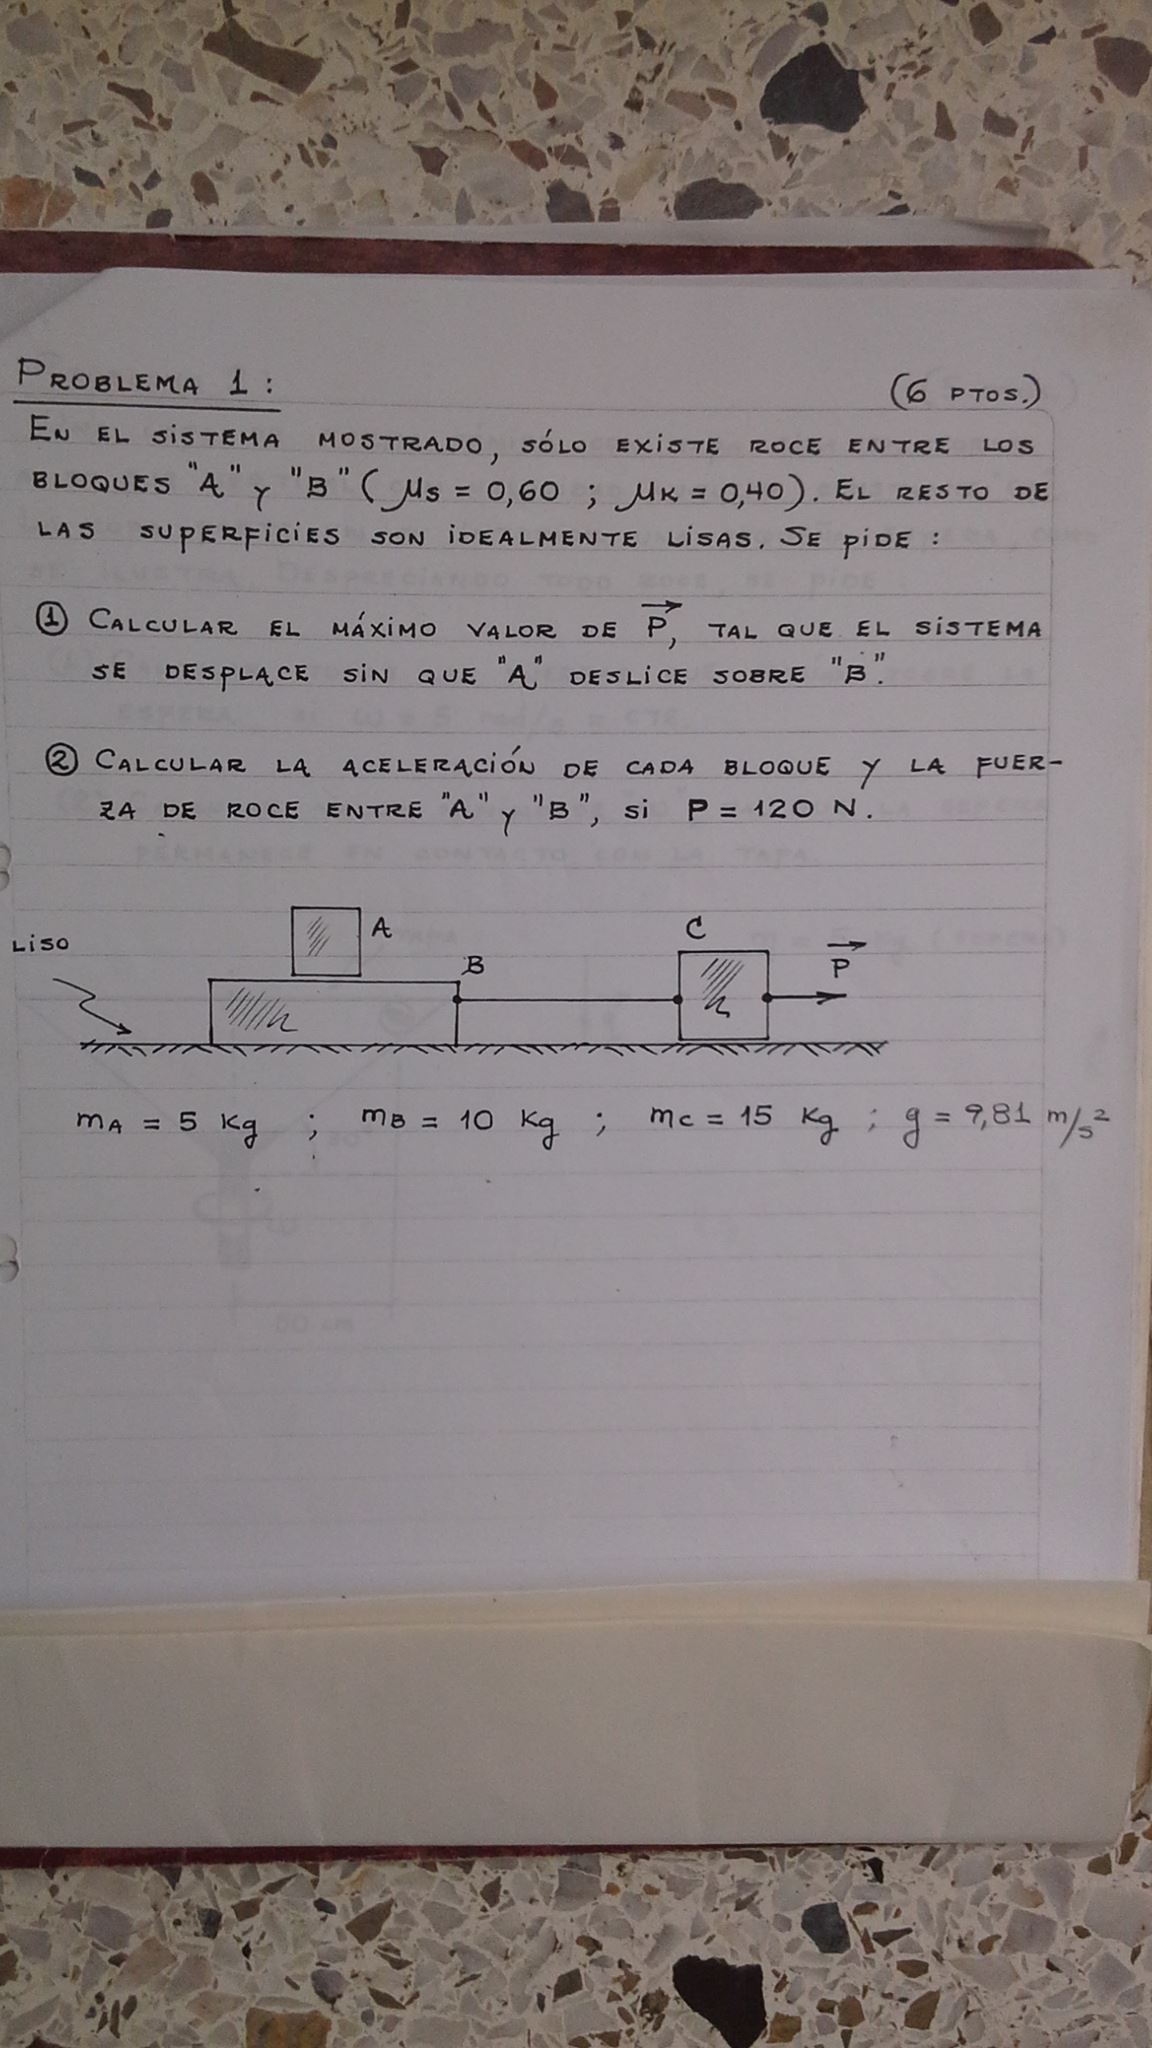 PROBLEMA 1: (6 PTOS.)
EN EL SISTEMA MOSTRADO, SÓLO EXISTE ROCE ENTRE LOS
BLOQUES "A" Y "B" (μs = 0,60 ; μk = 0,40). EL RESTO DE
LAS SUPERFICIES SON IDEALMENTE LISAS. SE PIDE :
① CALCULAR EL MÁXIMO VALOR DE P⃗, TAL QUE EL SISTEMA
SE DESPLACE SIN QUE "A" DESLICE SOBRE "B".
② CALCULAR LA ACELERACIÓN DE CADA BLOQUE Y LA FUER-
ZA DE ROCE ENTRE "A" Y "B", SI P = 120 N.
LISO
A
B
C
P⃗
mA = 5 Kg ; mB = 10 Kg ; mC = 15 Kg ; g = 9,81 m/s²